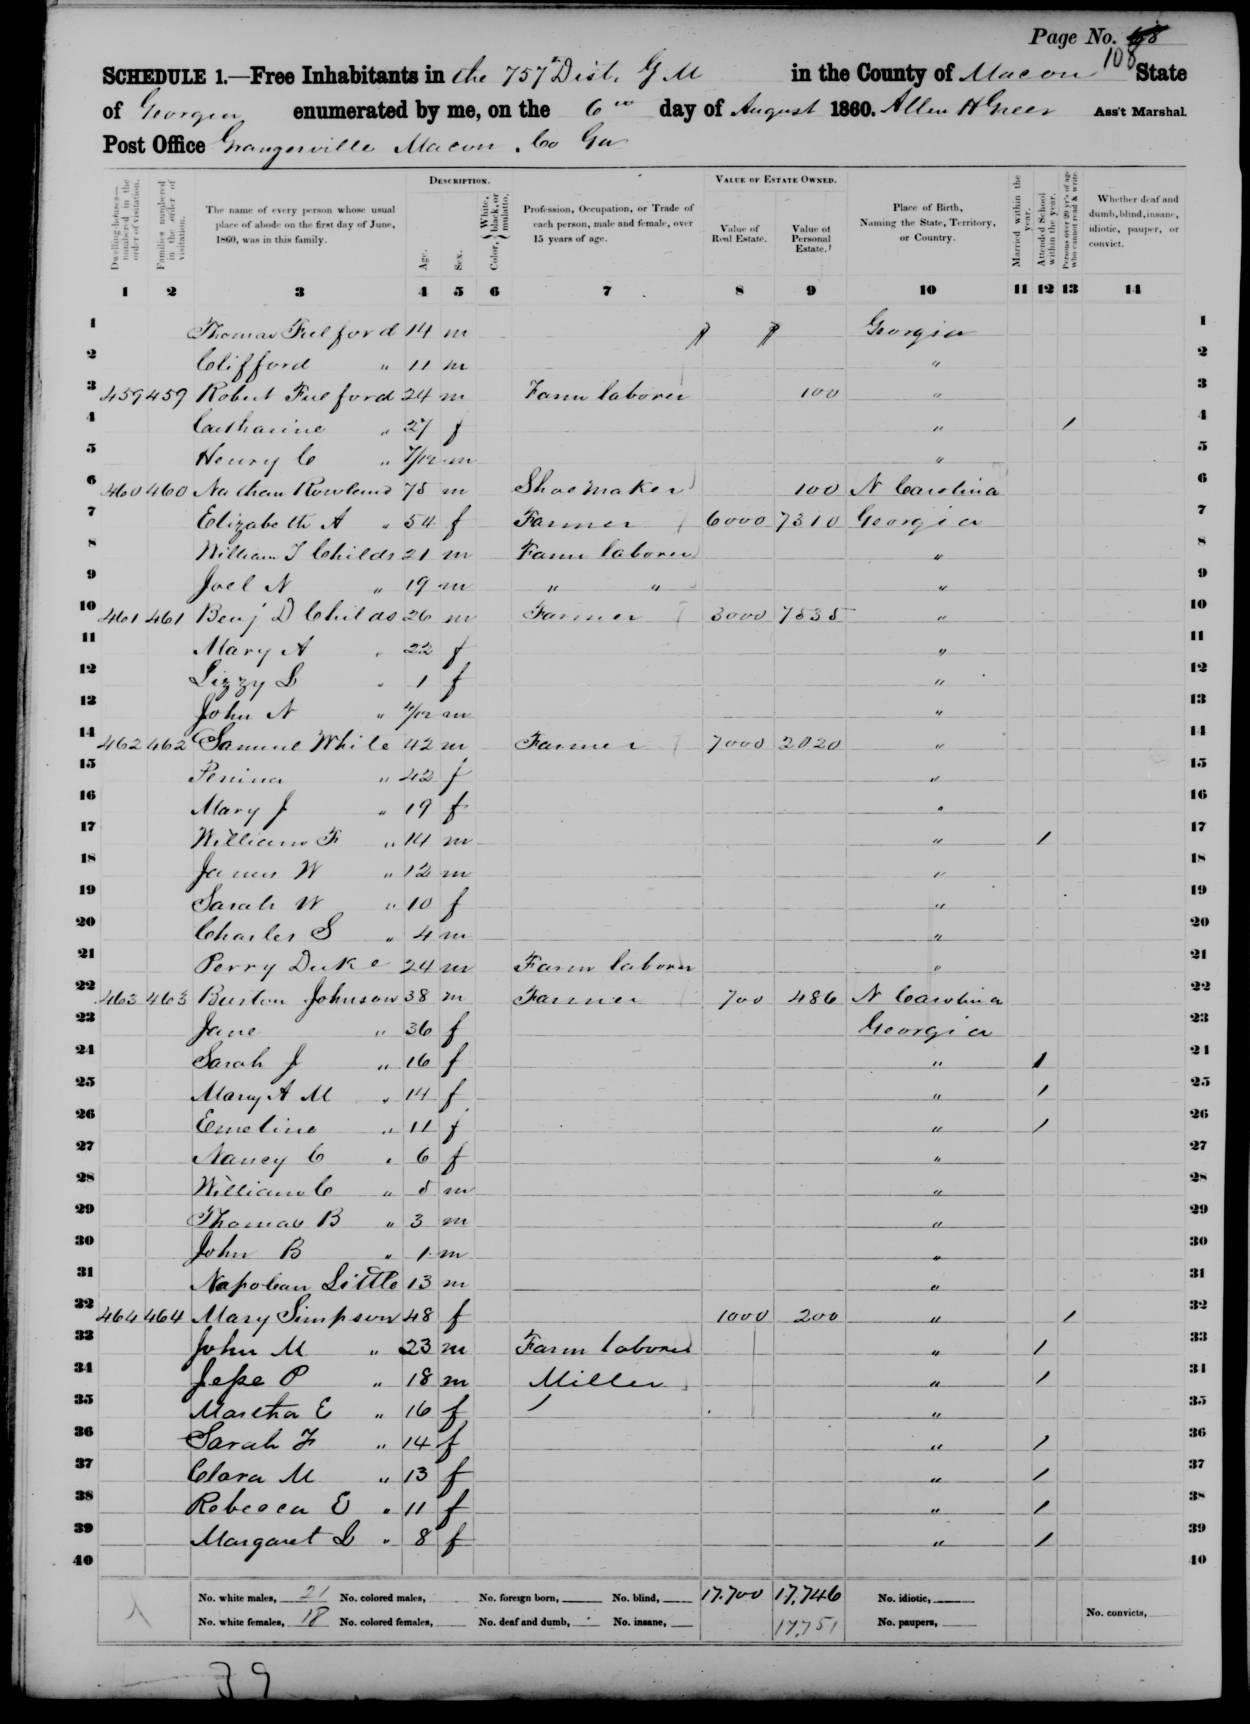 Page No. 108
SCHEDULE 1.—Free Inhabitants in the 757th Dist. G M in the County of Macon State
of Georgia enumerated by me, on the 6th day of August 1860. Allen H Greer Ass't Marshal.
Post Office Grangerville Macon Co Ga
DESCRIPTION. VALUE OF ESTATE OWNED.
Dwelling-houses—numbered in the order of visitation.
Families numbered in the order of visitation.
The name of every person whose usual place of abode on the first day of June, 1860, was in this family.
Age.
Sex.
Color, { White, black, or mulatto.
Profession, Occupation, or Trade of each person, male and female, over 15 years of age.
Value of Real Estate.
Value of Personal Estate.
Place of Birth, Naming the State, Territory, or Country.
Married within the year.
Attended School within the year.
Persons over 20 y'rs of age who cannot read & write.
Whether deaf and dumb, blind, insane, idiotic, pauper, or convict.
1 2 3 4 5 6 7 8 9 10 11 12 13 14
1 Thomas Fulford 14 m Georgia 1
2 Clifford " 11 m " 2
3 459 459 Robert Fulford 24 m Farm laborer 100 " 3
4 Catharine " 27 f " / 4
5 Henry C " 7/12 m " 5
6 460 460 Nathan Rowland 75 m Shoemaker 100 N Carolina 6
7 Elizabeth A " 54 f Farmer 6000 7310 Georgia 7
8 William T Childs 21 m Farm laborer " 8
9 Joel N " 19 m " " " 9
10 461 461 Benj D Childs 26 m Farmer 3000 7535 " 10
11 Mary A " 22 f " 11
12 Lizzy L " 1 f " 12
13 John N " 4/12 m " 13
14 462 462 Samuel White 42 m Farmer 7000 2020 " 14
15 Penina " 42 f " 15
16 Mary J " 19 f " 16
17 William F " 14 m " / 17
18 James W " 12 m " 18
19 Sarah W " 10 f " 19
20 Charles S " 4 m " 20
21 Perry Duke 24 m Farm laborer " 21
22 463 463 Burton Johnson 38 m Farmer 700 486 N Carolina 22
23 Jane " 36 f Georgia 23
24 Sarah J " 16 f " / 24
25 Mary A M " 14 f " / 25
26 Emeline " 11 f " / 26
27 Nancy C " 6 f " 27
28 William C " 5 m " 28
29 Thomas B " 3 m " 29
30 John B " 1 m " 30
31 Napolean Little 13 m " 31
32 464 464 Mary Simpson 48 f 1000 200 " / 32
33 John M " 23 m Farm laborer " / 33
34 Jesse P " 18 m Miller " / 34
35 Martha E " 16 f / " 35
36 Sarah F " 14 f " / 36
37 Clara M " 13 f " / 37
38 Rebecca E " 11 f " / 38
39 Margaret L " 8 f " / 39
40 40
No. white males, 21 No. colored males, No. foreign born, No. blind, 17.700 17,746 No. idiotic,
No. white females, 18 No. colored females, No. deaf and dumb, No. insane, 17,751 No. paupers, No. convicts,
39